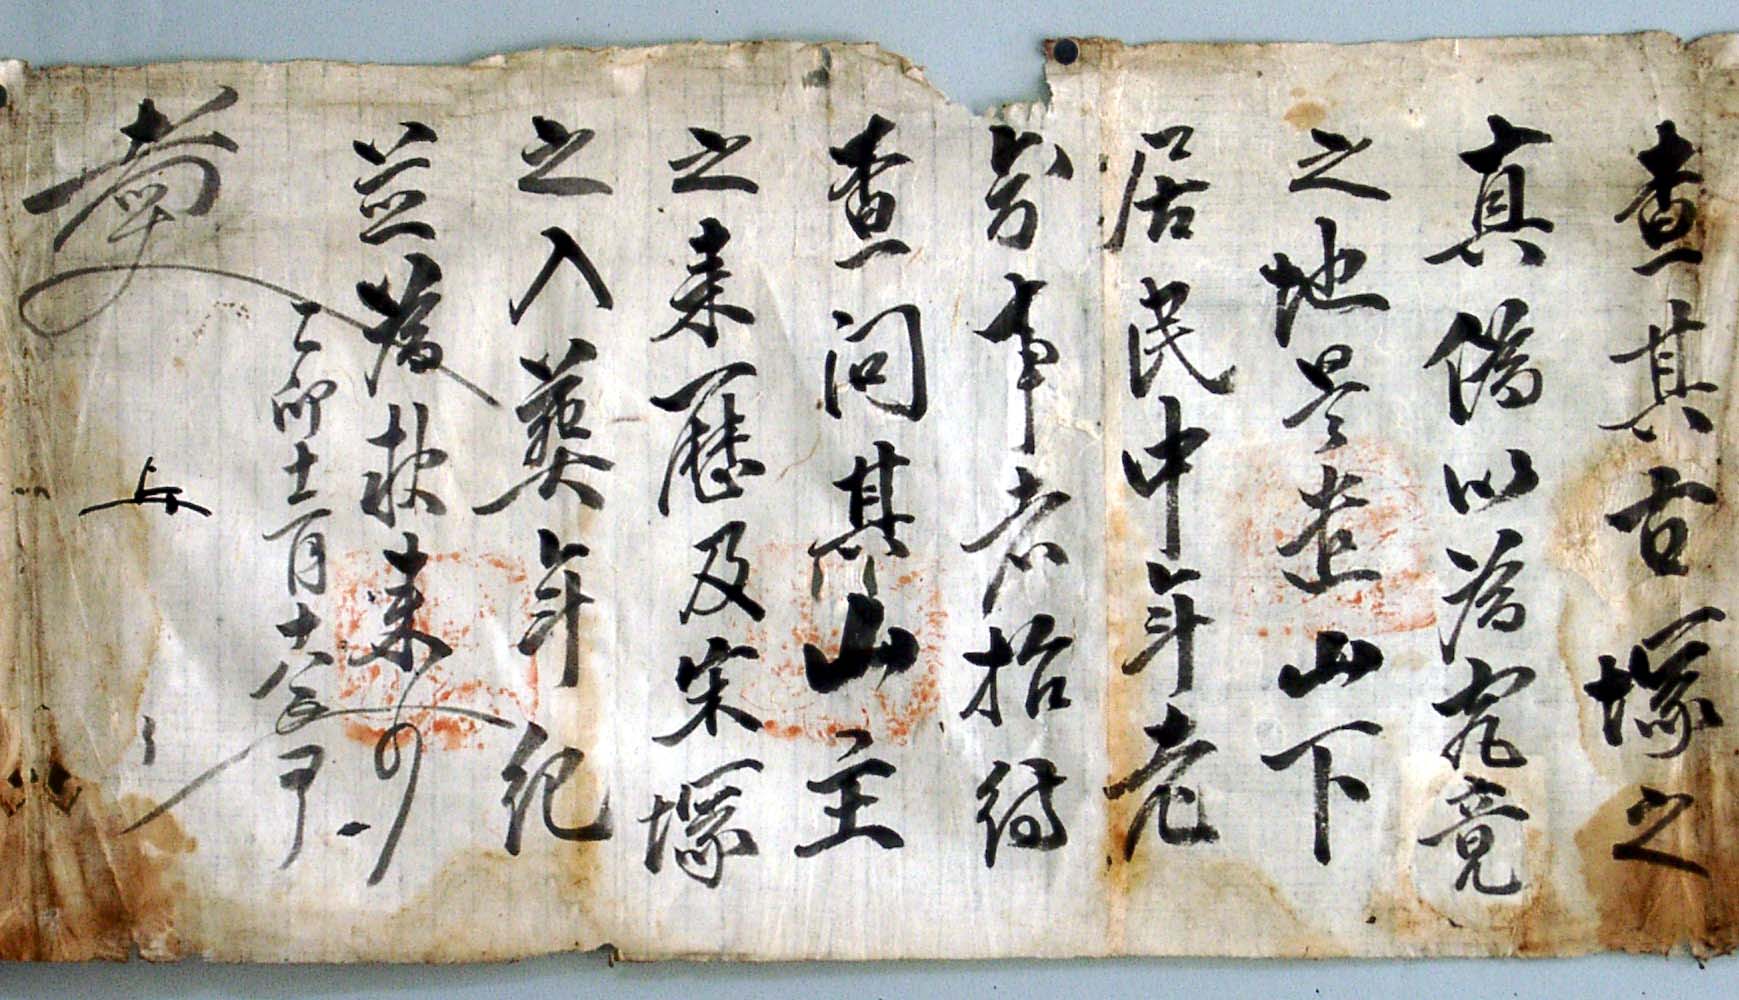 查其古塚之
真僞以爲究竟
之地是遣山下
居民中年老
解事者招待
查問其山主
之來歷及宋塚
之入葬年紀
並爲狀來
乙卯十一月十八日